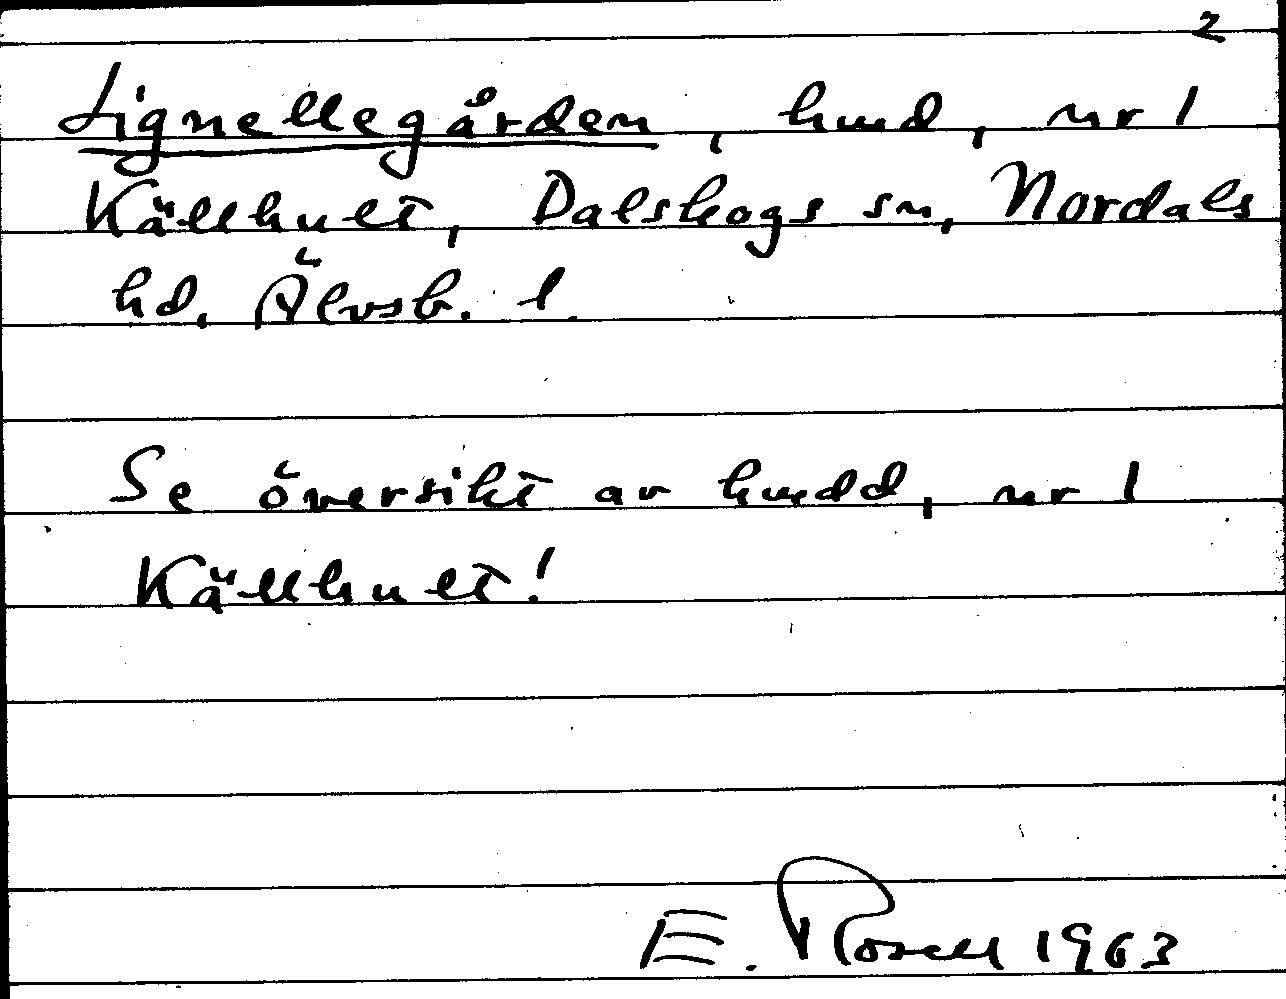 2
Lignellegården, hmd, nr 1
Källhult, Dalskogs sn, Nordals
hd. Älvsb. l.
Se översikt av hmdd, nr 1
Källhult!
E. Rosell 1963